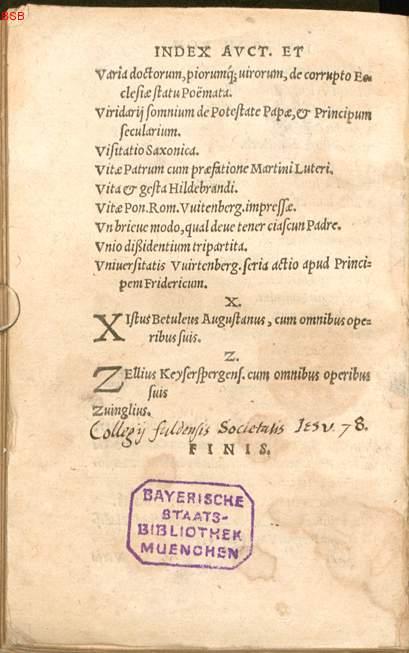 BSB
INDEX AVCT. ET
Varia doctorum, piorumq́; uirorum, de corrupto Ec
clesiæ statu Poëmata.
Viridarij somnium de Potestate Papæ, & Principum
secularium.
Visitatio Saxonica.
Vitæ Patrum cum præfatione Martini Luteri.
Vita & gesta Hildebrandi.
Vitæ Pon. Rom. Vuitenberg. impressæ.
Vn brieue modo, qual deue tener ciascun Padre.
Vnio dißidentium tripartita.
Vniuersitatis Vuirtenberg. seria actio apud Princi-
pem Fridericum.
X.
XIstus Betuleus Augustanus, cum omnibus ope-
ribus suis.
Z.
ZEllius Keyserspergens. cum omnibus operibus
suis
Zuinglius.
Collegij fuldensis Societatis Iesv. 78.
FINIS.
BAYERISCHE
STAATS-
BIBLIOTHEK
MUENCHEN